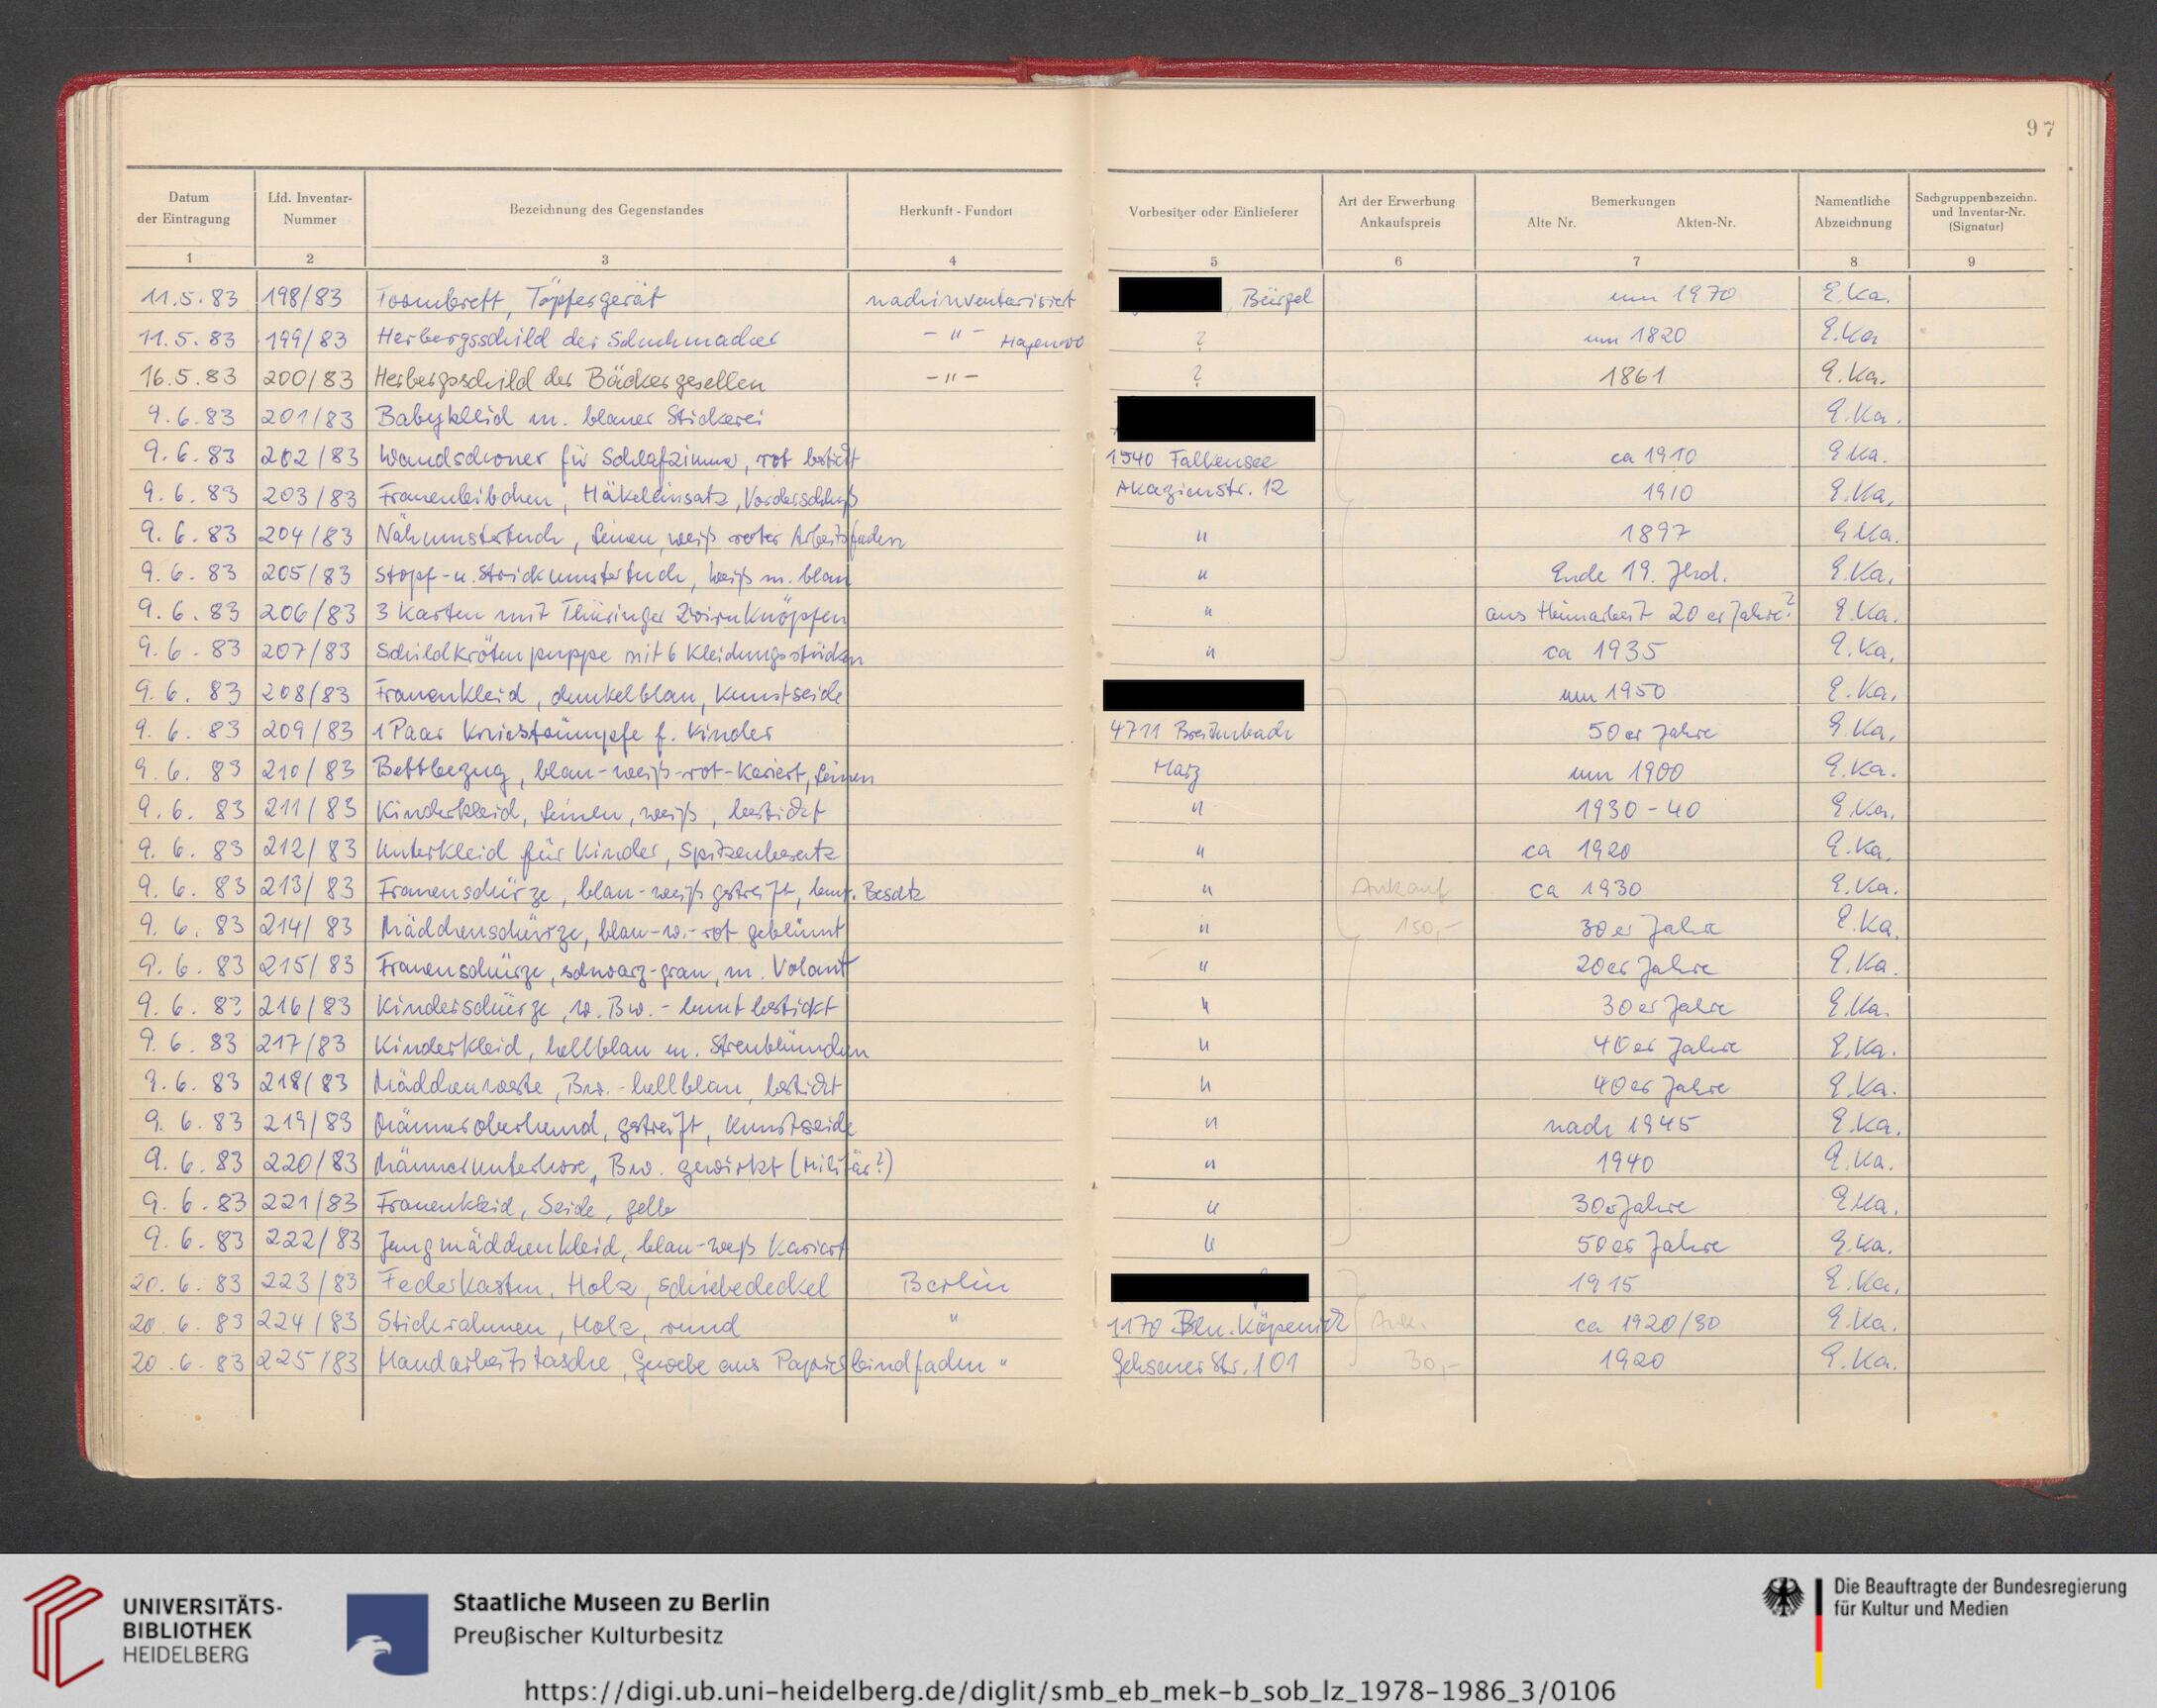 97
Datum der Eintragung Lfd. Inventar-Nummer Bezeichnung des Gegenstandes Herkunft - Fundort Vorbesitzer oder Einlieferer Art der Erwerbung Ankaufspreis Bemerkungen Alte Nr. Akten-Nr. Namentliche Abzeichnung Sachgruppenbezeichn. und Inventar-Nr. (Signatur)
1 2 3 4 5 6 7 8 9
11.5.83 198/83 Töpfergerät nachinventarisiert Bürgel um 1970 E.Ka.
11.5.83 199/83 Herbergsschild der Schuhmacher -"- Hagenow ? um 1820 E.Ka
16.5.83 200/83 Herbergsschild der Bäckergesellen -"- ? 1861 E.Ka.
9.6.83 201/83 Babykleid m. blauer Stickerei E.Ka.
9.6.83 202/83 Wandschoner für Schlafzimmer, rot bestickt 1540 Falkensee ca 1910 E.Ka.
9.6.83 203/83 Frauenleibchen, Häkeleinsatz, Vorderschluß Akazienstr. 12 1910 E.Ka.
9.6.83 204/83 Nähmustertuch, Leinen, weiß roter Arbeitsfaden " 1897 E.Ka.
9.6.83 205/83 Stopf-u. Strickmustertuch, weiß m. blau " Ende 19. Jhd. E.Ka.
9.6.83 206/83 3 Karten mit Thüringer Zwirnknöpfen " aus Heimarbeit 20er Jahre? E.Ka.
9.6.83 207/83 Schildkrötenpuppe mit 6 Kleidungsstücken " ca 1935 E.Ka.
9.6.83 208/83 Frauenkleid, dunkelblau, Kunstseide um 1950 E.Ka.
9.6.83 209/83 1 Paar Kniestrümpfe f. Kinder 4711 Breitenbach 50er Jahre E.Ka.
9.6.83 210/83 Bettbezug, blau-weiß-rot-kariert, Leinen Harz um 1900 E.Ka.
9.6.83 211/83 Kinderkleid, Leinen, weiß, bestickt " 1930-40 E.Ka.
9.6.83 212/83 Unterkleid für Kinder, Spitzenbesatz " ca 1920 E.Ka.
9.6.83 213/83 Frauenschürze, blau-weiß gestreift, bunt. Besatz " Ankauf ca 1930 E.Ka.
9.6.83 214/83 Mädchenschürze, blau-w.-rot geblümt " 150,- 30er Jahre E.Ka.
9.6.83 215/83 Frauenschürze, schwarz-grau, m. Volant " 20er Jahre E.Ka.
9.6.83 216/83 Kinderschürze, w. Bw. - bunt bestickt " 30er Jahre E.Ka.
9.6.83 217/83 Kinderkleid, hellblau m. Streublümchen " 40er Jahre E.Ka.
9.6.83 218/83 Mädchenweste, Bw. - hellblau, bestickt " 40er Jahre E.Ka.
9.6.83 219/83 Männeroberhemd, gestreift, Kunstseide " nach 1945 E.Ka.
9.6.83 220/83 Männerunterhose, Bw. gewirkt (Militär?) " 1940 E.Ka.
9.6.83 221/83 Frauenkleid, Seide, gelb " 30er Jahre E.Ka.
9.6.83 222/83 Jungmädchenkleid, blau-weiß kariert " 50er Jahre E.Ka.
20.6.83 223/83 Federkasten, Holz, Schiebedeckel Berlin 1915 E.Ka.
20.6.83 224/83 Stickrahmen, Holz, rund " 1170 Bln. Köpenick Ank. ca 1920/30 E.Ka.
20.6.83 225/83 Handarbeitstasche, Gewebe aus Papierbindfaden " Str. 101 30,- 1920 E.Ka.
UNIVERSITÄTS-
BIBLIOTHEK
HEIDELBERG
Staatliche Museen zu Berlin
Preußischer Kulturbesitz
Die Beauftragte der Bundesregierung
für Kultur und Medien
https://digi.ub.uni-heidelberg.de/diglit/smb_eb_mek-b_sob_lz_1978-1986_3/0106